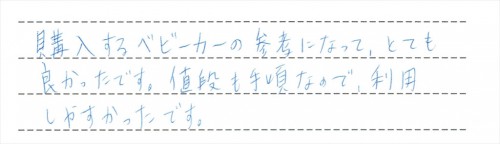 購入するベビーカーの参考になって、とても
良かったです。値段も手頃なので、利用
しやすかったです。